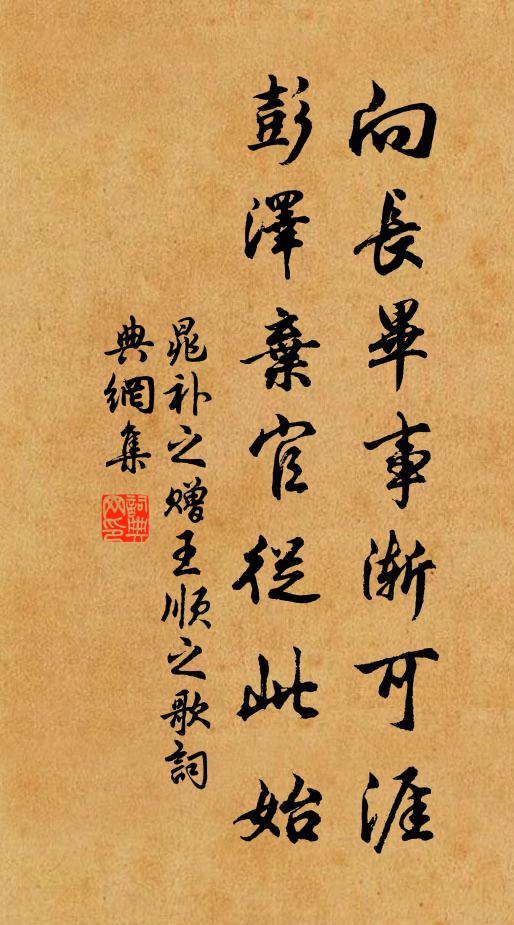 向長畢事漸可涯
彭澤棄官從此始
晁补之赠王顺之歌詞
典網集
詞典網印